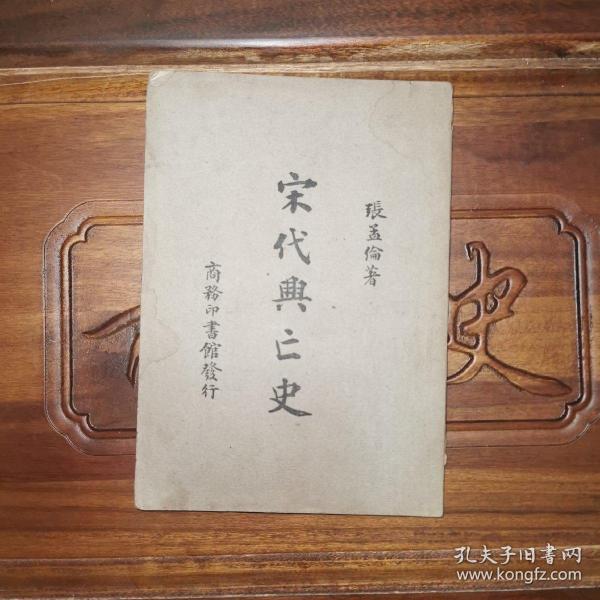 張孟倫著
宋代興亡史
商務印書館發行
史
孔夫子旧書网
www.kongfz.com